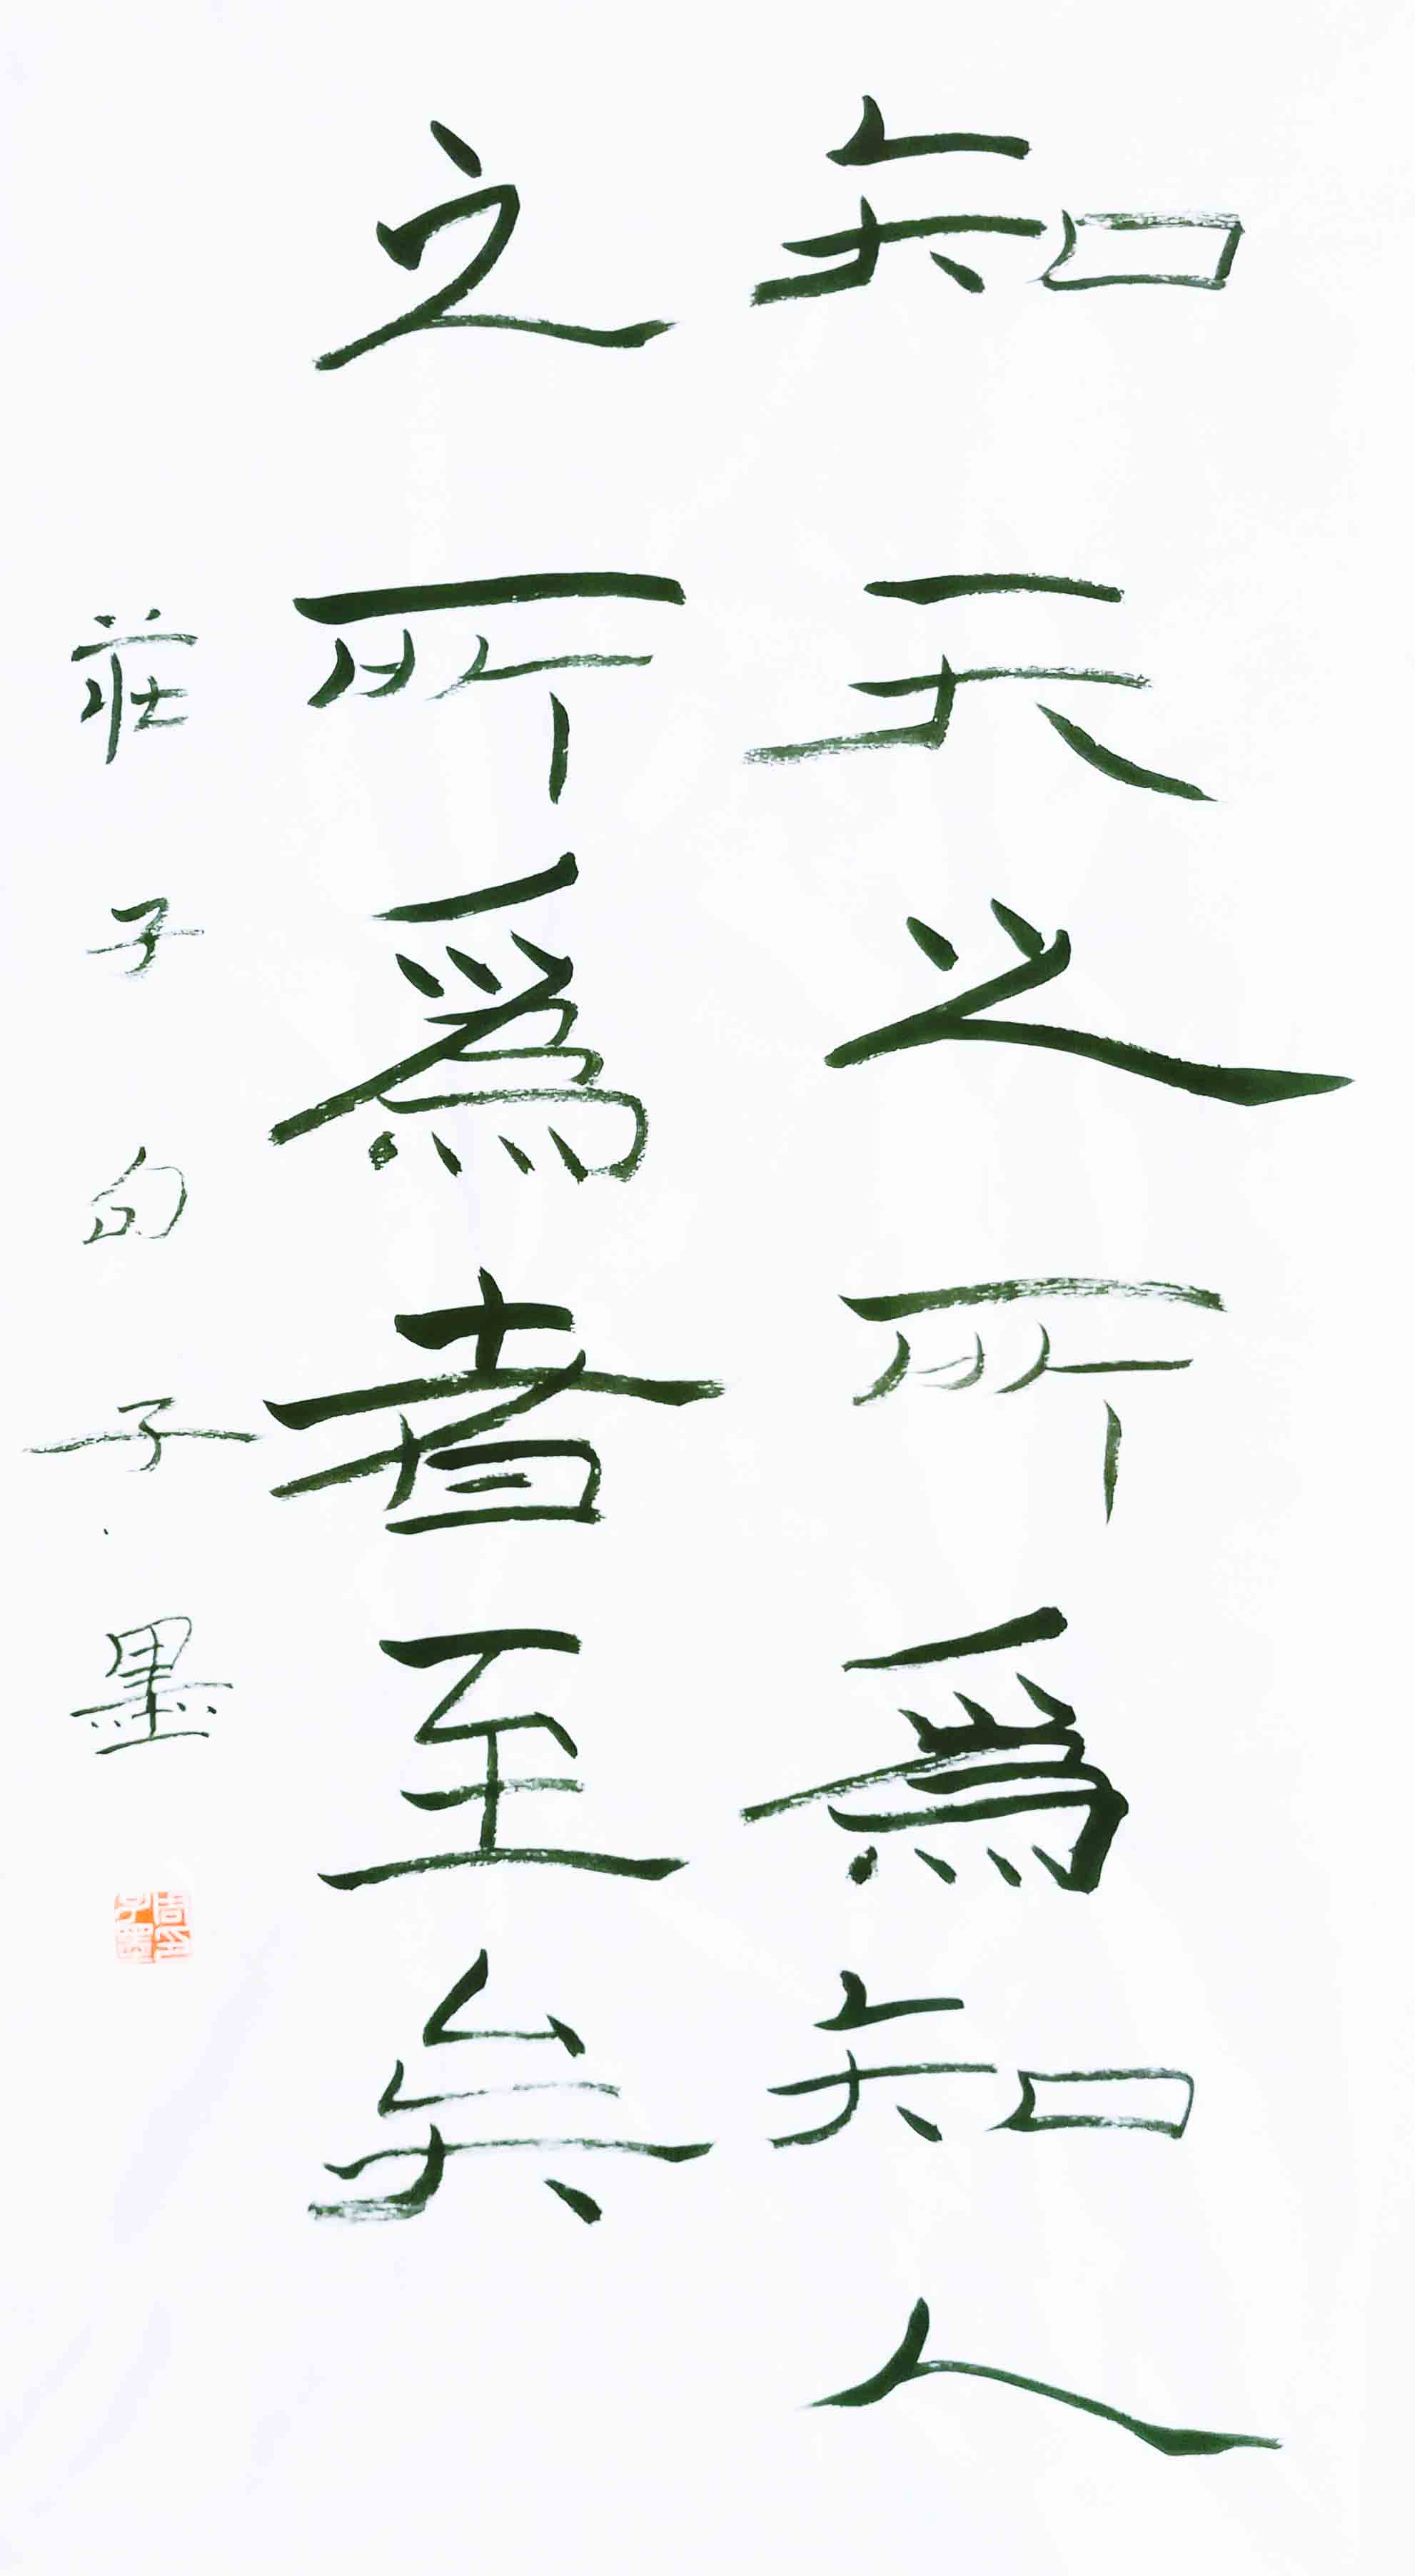 知天之所爲知人
之所爲者至矣
莊子句子墨